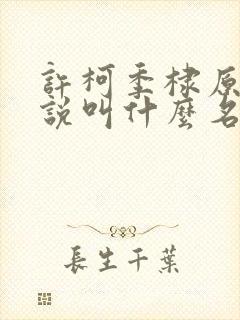 許柯季棣原
說叫什麼名
長生千葉